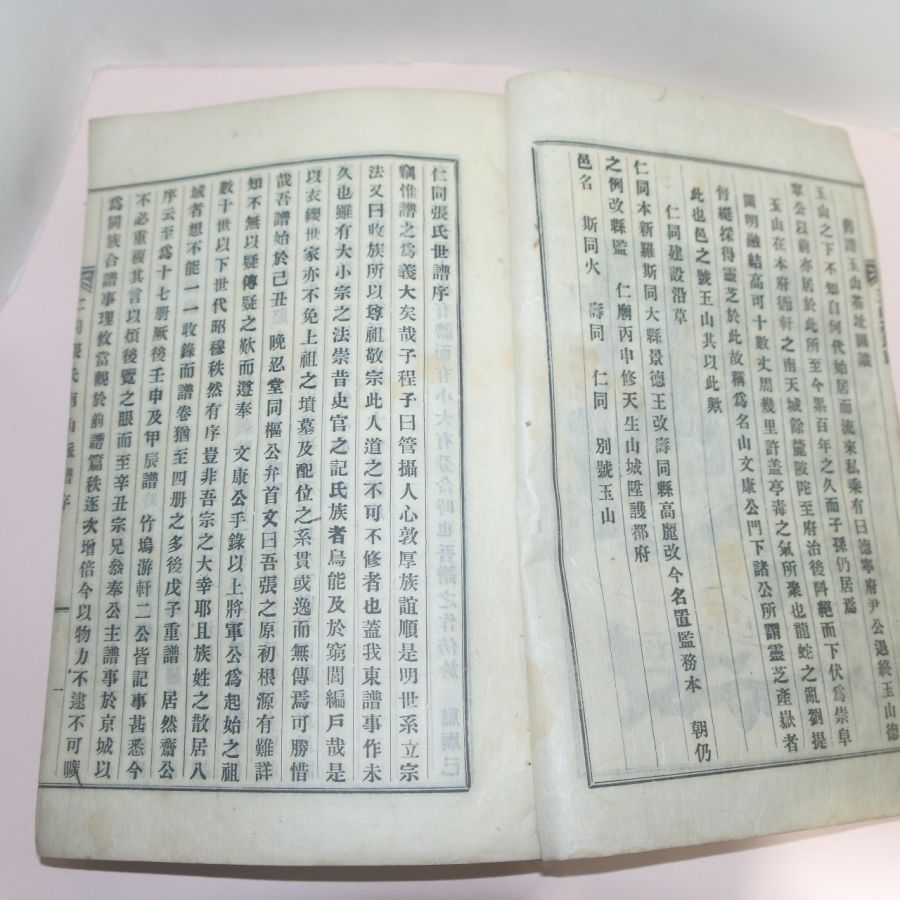 舊譜玉山基址圖識
玉山之下不知自何代始居而流來私乘有曰德寧府尹公退終玉山德
寧公以前亦居於此所至今累百年之久而子孫仍居焉
玉山在本府衙軒之南天城餘麓陂陀至府治後阧絕而下伏爲崇阜
圓明融結高可十數丈周幾里許盖亭毒之氣所聚也龍蛇之亂劉提
督綎採得靈芝於此故稱爲名山文康公門下諸公所謂靈芝產嶽者
此也邑之號玉山其以此歟
仁同建設沿革
仁同本新羅斯同大縣景德王改壽同縣高麗改今名置監務本 朝仍
之例改縣監 仁廟丙申修天生山城陞護都府
邑名 斯同火 壽同 仁同 別號玉山
仁同張氏世譜序
竊惟譜之爲義大矣哉子程子曰管攝人心敦厚族誼順是明世系立宗
法又曰收族所以尊祖敬宗此人道之不可不修者也蓋我東譜事作未
久也雖有大小宗之法崇昔史官之記氏族者烏能及於窮閭編戶哉是
以衣纓世家亦不免上祖之墳墓及配位之系貫或逸而無傳焉可勝惜
哉吾譜始於己丑 晩忍堂同樞公弁首文曰吾張之原初根源有難詳
知不無以疑傳疑之歎而遵奉 文康公手錄以上將軍公爲起始之祖
數十世以下世代昭穆秩然有序豈非吾宗之大幸耶且族姓之散居八
域者想不能一一收錄而譜卷猶至四册之多後戊子重譜 居然齋公
序云至爲十七册厥後壬申及甲辰譜 竹塢游軒二公皆記事甚悉今
不必重複其言以煩後覽之眼而至辛丑宗兄叅奉公主譜事於京城以
爲同族合譜事理攸當觀於前譜篇秩逐次增倍今以物力不逮不可曠
仁同張氏南山派譜序
一